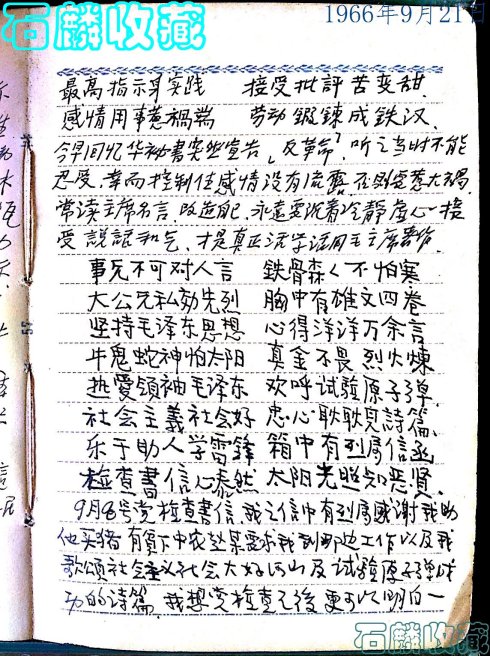 石麟收藏
1966年9月21日
最高指示身实践 接受批評苦变甜
感情用事惹禍端 劳动鍛鍊成鉄汉
今早回忆华秘書突然宣告"反革命"听之当时不能
忍受,幸而控制住感情没有流露,否则要惹大禍,
常读主席名言,改造自己,永遠要沉着冷静虚心接
受,説話和气,才是真正活学活用毛主席著作.
事无不可对人言 鉄骨森々不怕寒
大公无私効先烈 胸中有雄文四卷
坚持毛泽东思想 心得洋洋万余言
牛鬼蛇神怕太阳 真金不畏烈火煉
热愛領袖毛泽东 欢呼试验原子弹
社会主義社会好 忠心耿耿見詩篇
乐于助人学雷鋒 箱中有列属信函
检查書信心泰然 太阳光照知恶賢.
9月8号党检查書信,我之信中有列属感谢我助
他买猪,有貧下中农 要求我到那边工作以及我
歌頌社会主义社会大好河山及试验原子弹成
功的诗篇,我想党检查之後更可以明白一
石麟收藏